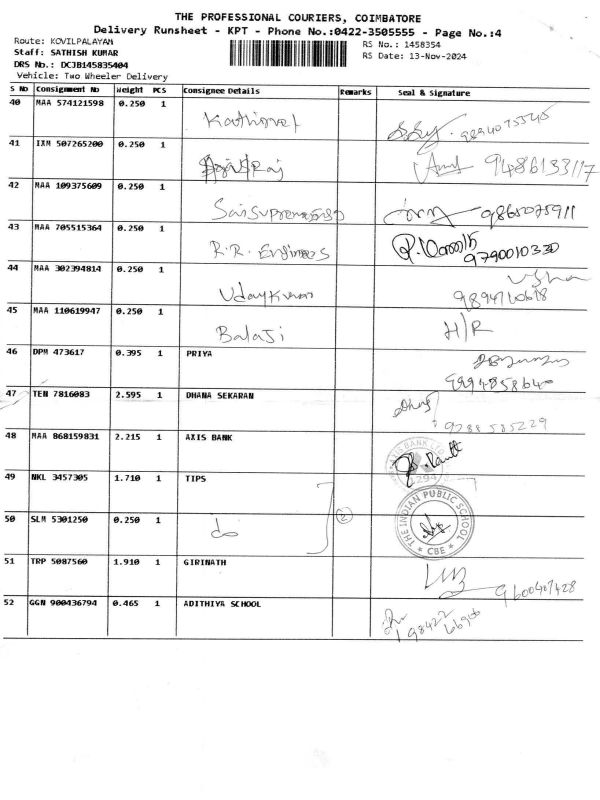 THE PROFESSIONAL COURIERS, COIMBATORE
Delivery Runsheet - KPT - Phone No.:0422-3505555 - Page No.:4
Route: KOVILPALAYAM
RS No.: 1458354
Staff: SATHISH KUMAR
RS Date: 13-Nov-2024
DRS No.: DCJB145835404
Vehicle: Two Wheeler Delivery
S No Consignment No Weight PCS Consignee Details Remarks Seal & Signature
40 MAA 574121598 0.250 1 Kathirvel
41 IXM 507265200 0.250 1 9486133117
42 MAA 109375609 0.250 1 9865075911
43 MAA 705515364 0.250 1 R.R. Engineers 9790010330
44 MAA 302394814 0.250 1 Udaykumar Usha
45 MAA 110619947 0.250 1 Balaji H/R
46 DPM 473617 0.395 1 PRIYA 9994858640
47 TEN 7816083 2.595 1 DHANA SEKARAN 9788585229
48 MAA 868159831 2.215 1 AXIS BANK
49 NKL 3457305 1.710 1 TIPS
50 SLM 5301250 0.250 1 do 2 THE INDIAN PUBLIC SCHOOL * CBE *
51 TRP 5087560 1.910 1 GIRINATH 9600407428
52 GGN 900436794 0.465 1 ADITHIYA SCHOOL 98422